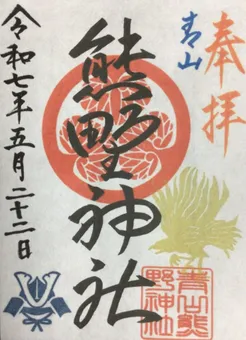 奉拝
青山
熊野神社
令和七年五月二十二日
青山熊
野神社